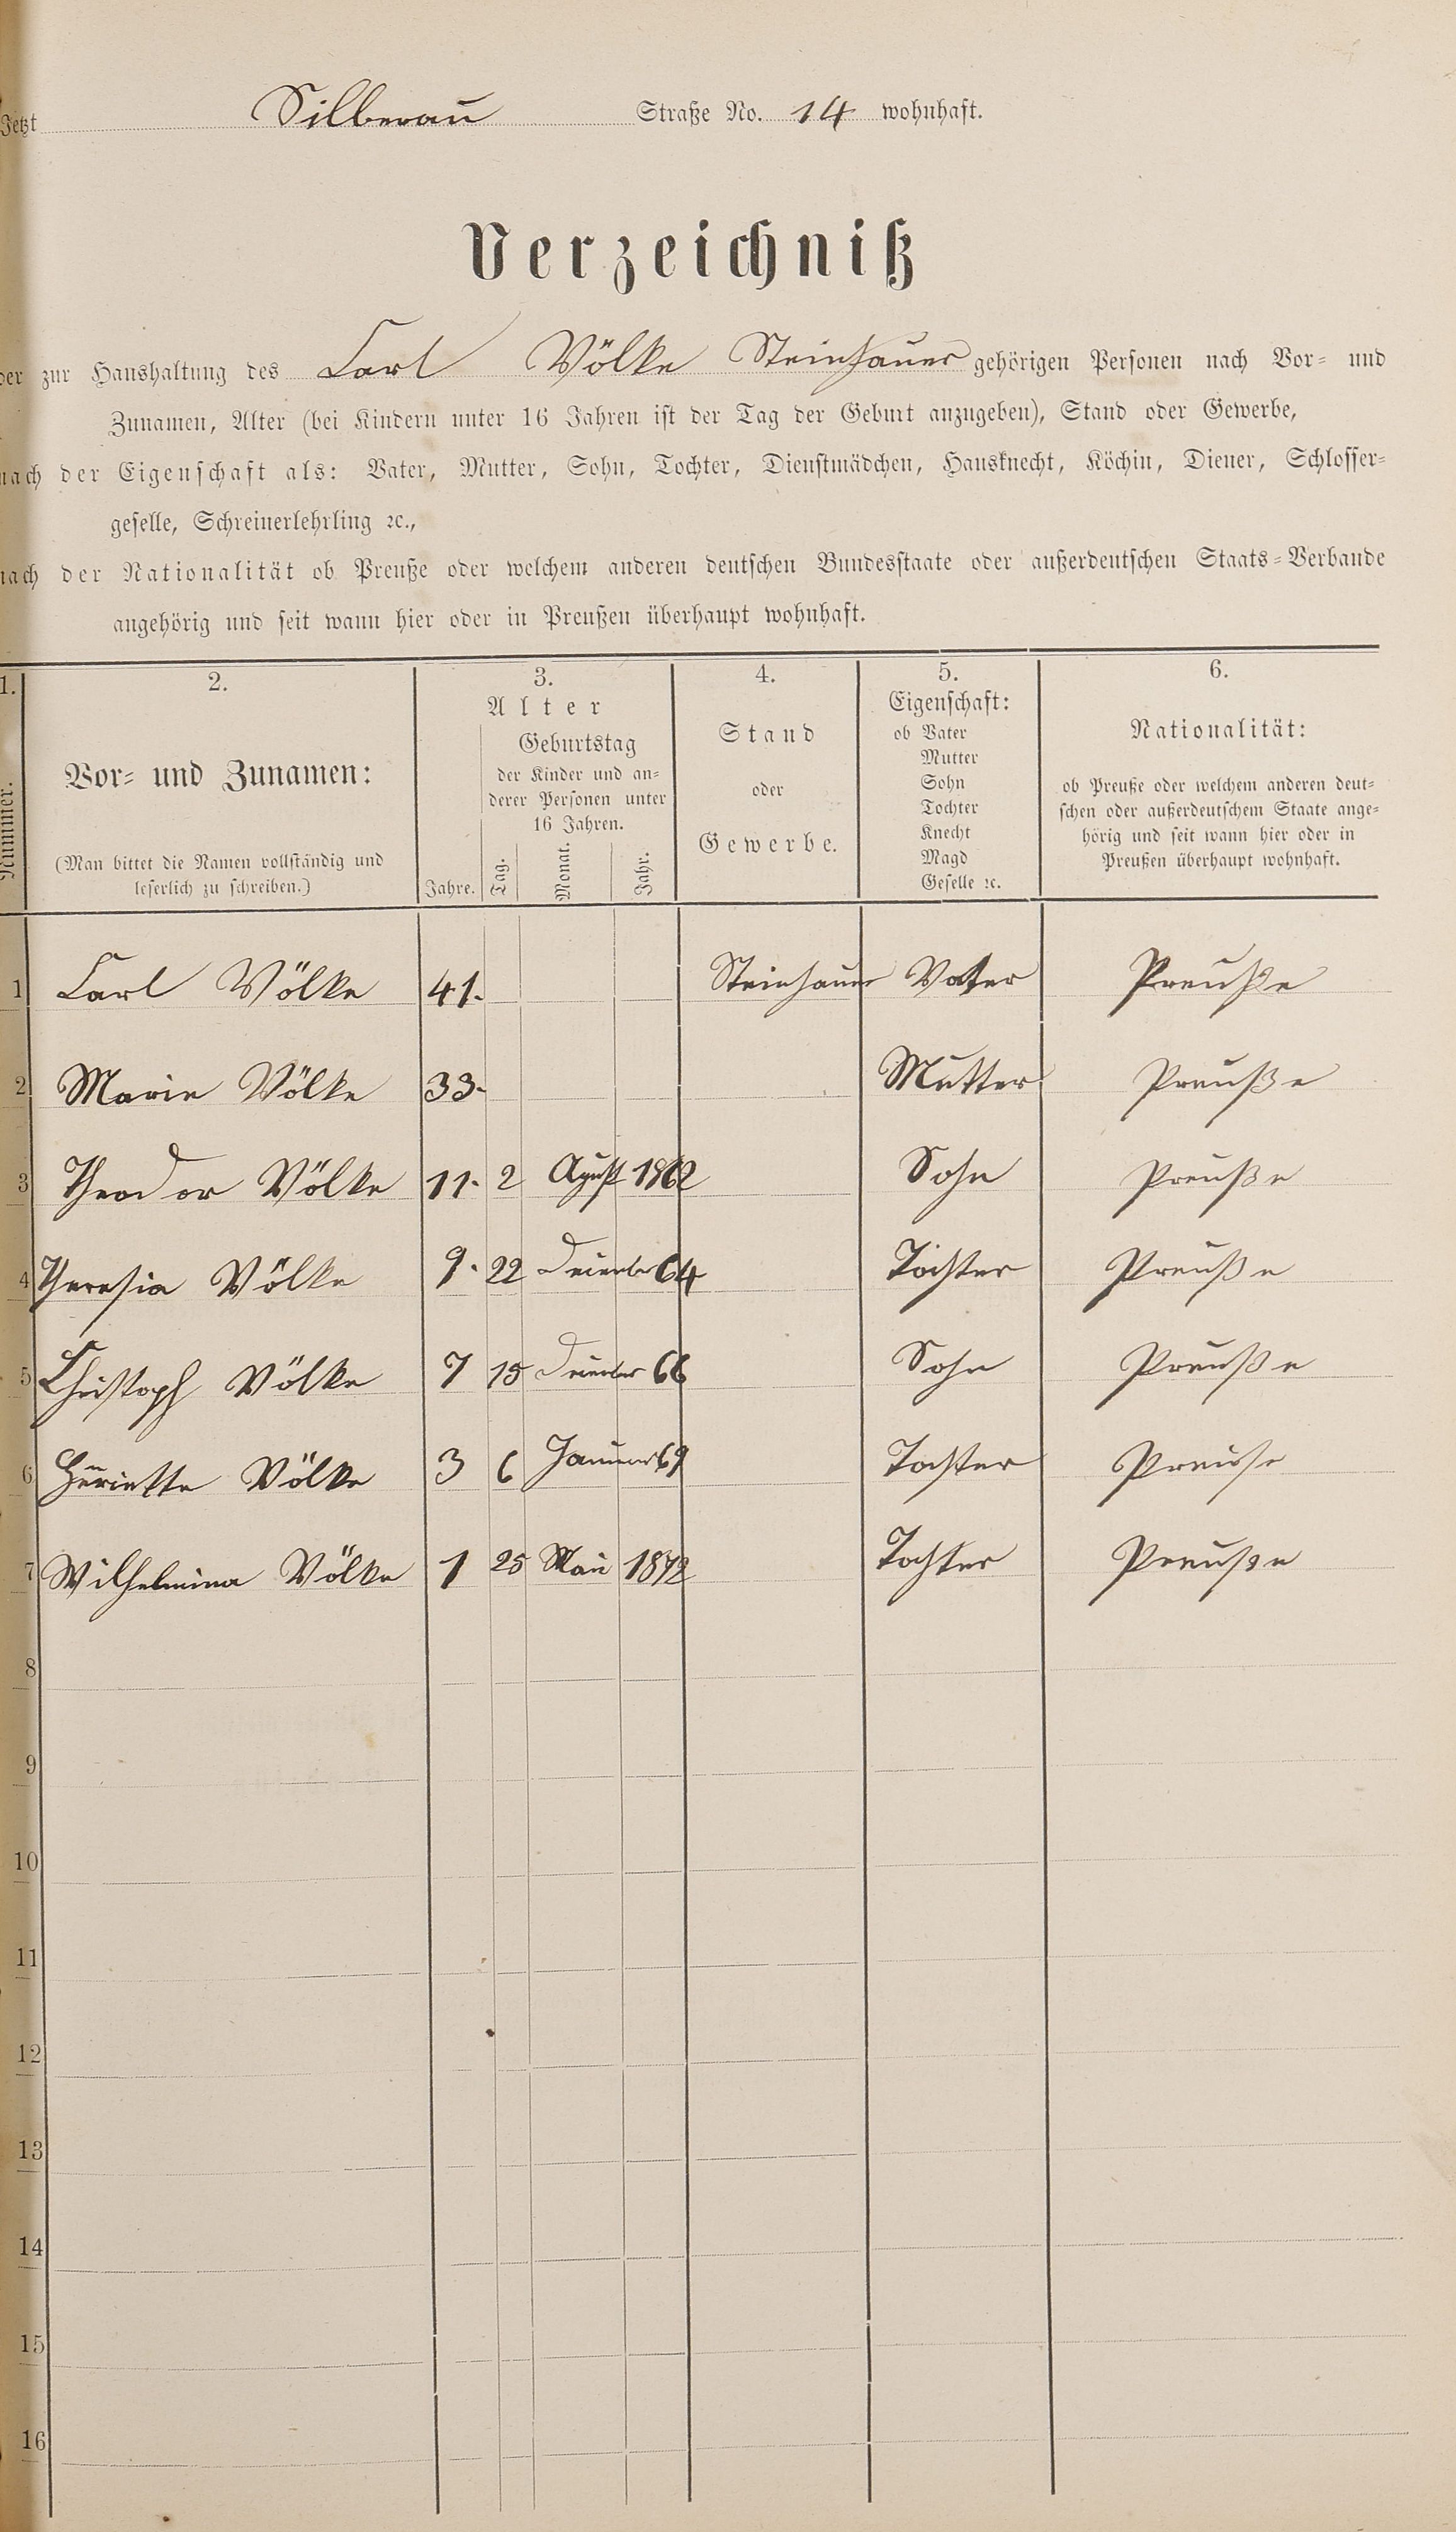 Jetzt Silberau Straße No. 14 wohnhaft.
Verzeichniß
der zur Haushaltung des Carl Völke Steinhauer gehörigen Personen nach Vor- und
Zunamen, Alter (bei Kindern unter 16 Jahren ist der Tag der Geburt anzugeben), Stand oder Gewerbe,
nach der Eigenschaft als: Vater, Mutter, Sohn, Tochter, Dienstmädchen, Hausknecht, Köchin, Diener, Schlosser-
geselle, Schreinerlehrling ꝛc.,
nach der Nationalität ob Preuße oder welchem anderen deutschen Bundesstaate oder außerdeutschen Staats-Verbande
angehörig und seit wann hier oder in Preußen überhaupt wohnhaft.
1.
Nummer.
2.
Vor- und Zunamen:
(Man bittet die Namen vollständig und
leserlich zu schreiben.)
3.
Alter
Jahre.
Geburtstag
der Kinder und an-
derer Personen unter
16 Jahren.
Tag.
Monat.
Jahr.
4.
Stand
oder
Gewerbe.
5.
Eigenschaft:
ob Vater
Mutter
Sohn
Tochter
Knecht
Magd
Geselle ꝛc.
6.
Nationalität:
ob Preuße oder welchem anderen deut-
schen oder außerdeutschem Staate ange-
hörig und seit wann hier oder in
Preußen überhaupt wohnhaft.
1 Carl Völke 41. Steinhauer Vater Preuße
2 Marie Völke 33. Mutter Preuße
3 Theodor Völke 11. 2 Agust 1862 Sohn Preuße
4 Theresia Völke 9. 22 64 Tochter Preuße
5 Christoph Völke 7 15 66 Sohn Preuße
6 Völke 3 6 Januar 69 Tochter Preusse
7 Wilhelmina Völke 1 25 Mai 1872 Tochter Preuße
8
9
10
11
12
13
14
15
16